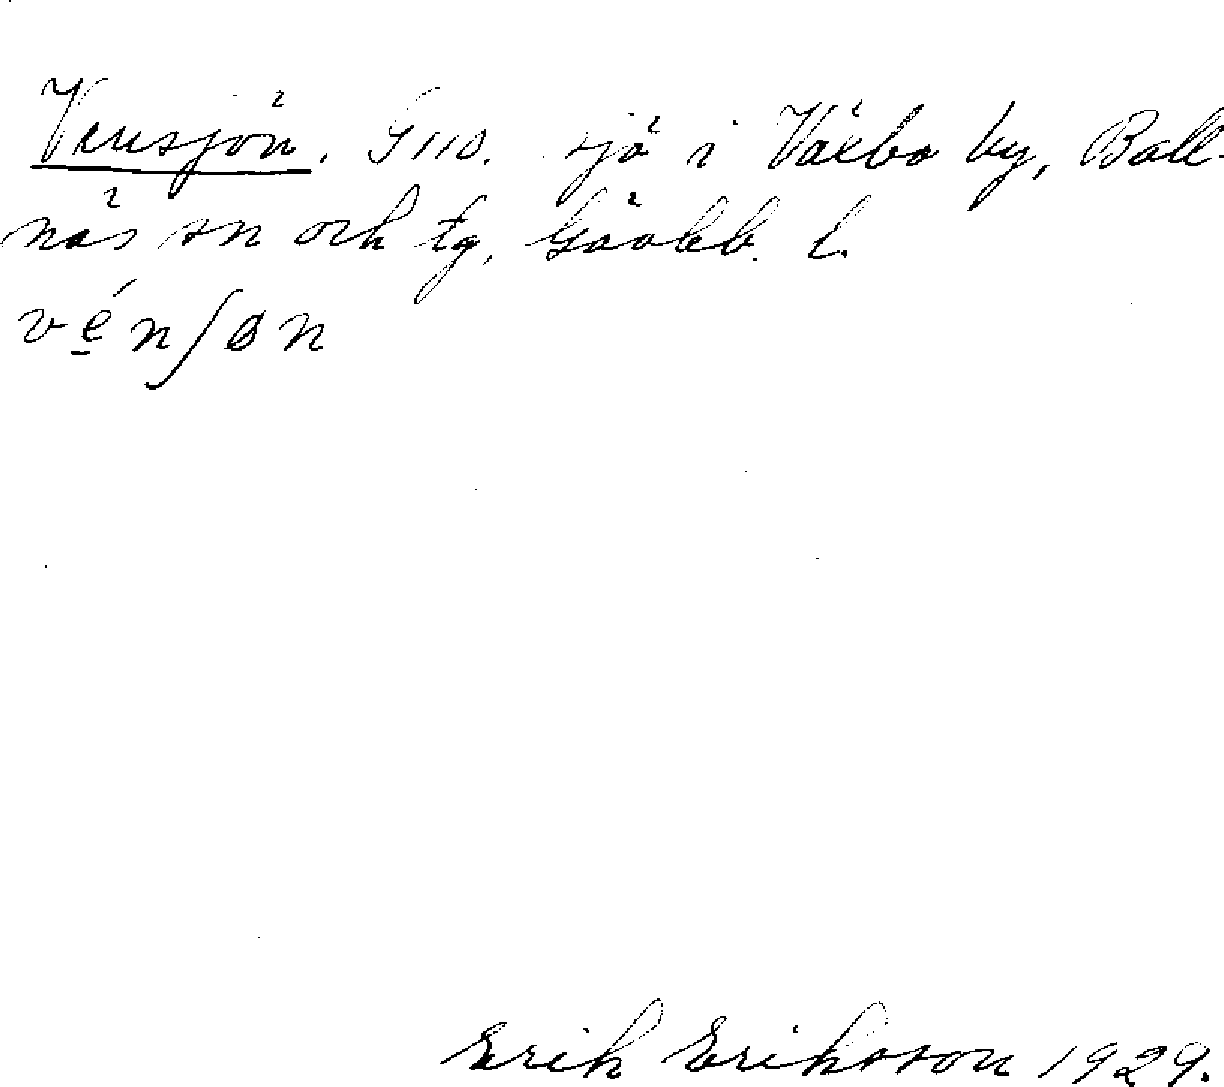 Vensjön. sjö i Växbo by, Boll-
näs sn och tg, Gävleb. l.
vé̱nʃøn
Erik Eriksson 1929.